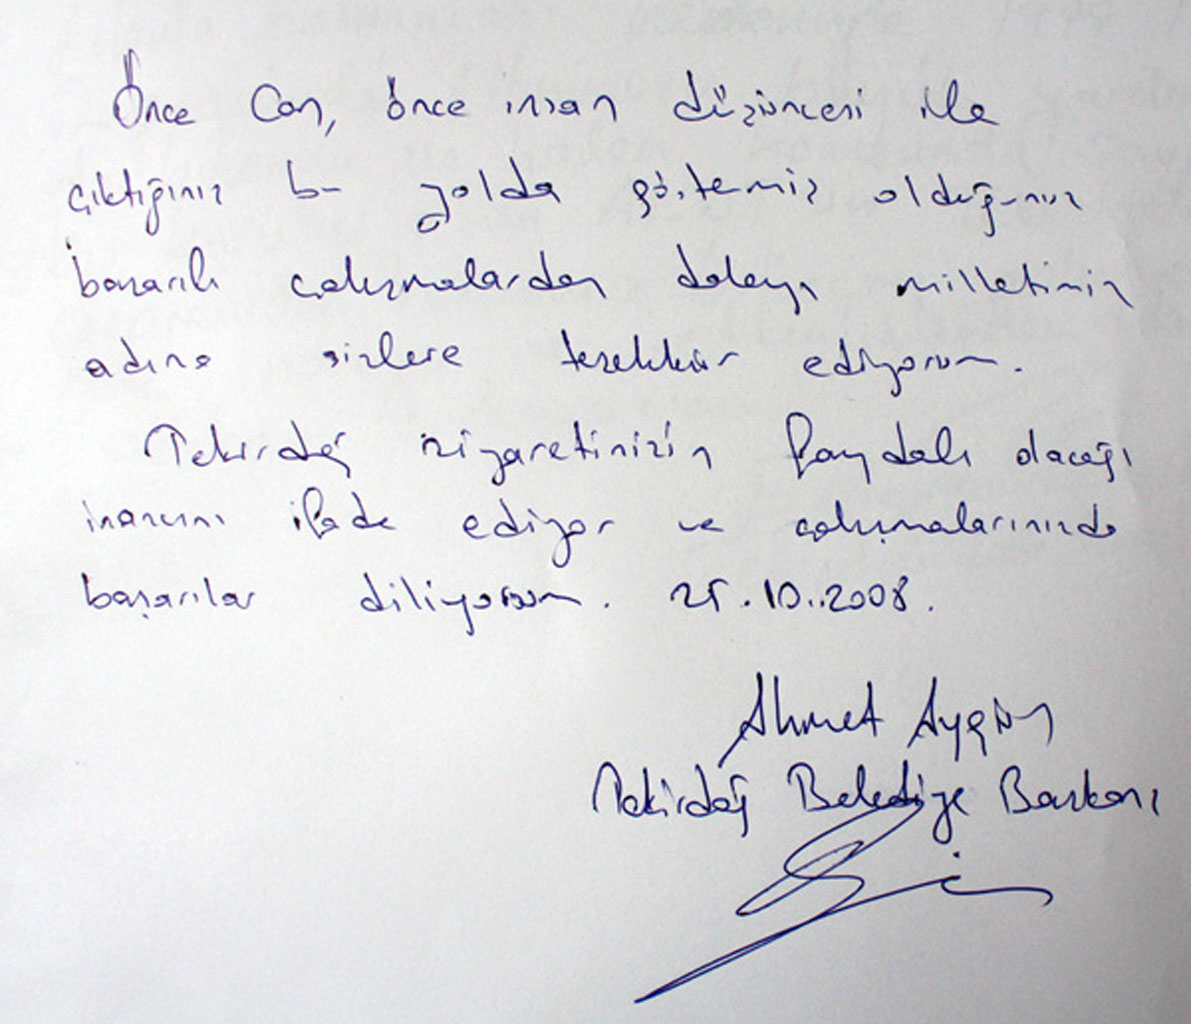 Önce Can, önce insan düşüncesi ile
çıktığınız bu yolda göstermiş olduğunuz
başarılı çalışmalardan dolayı milletimin
adına sizlere teşekkür ediyorum.
Tekirdağ ziyaretinizin faydalı olacağı
inancını ifade ediyor ve çalışmalarınızda
başarılar diliyorum. 25.10..2008.
Ahmet Aygün
Tekirdağ Belediye Başkanı